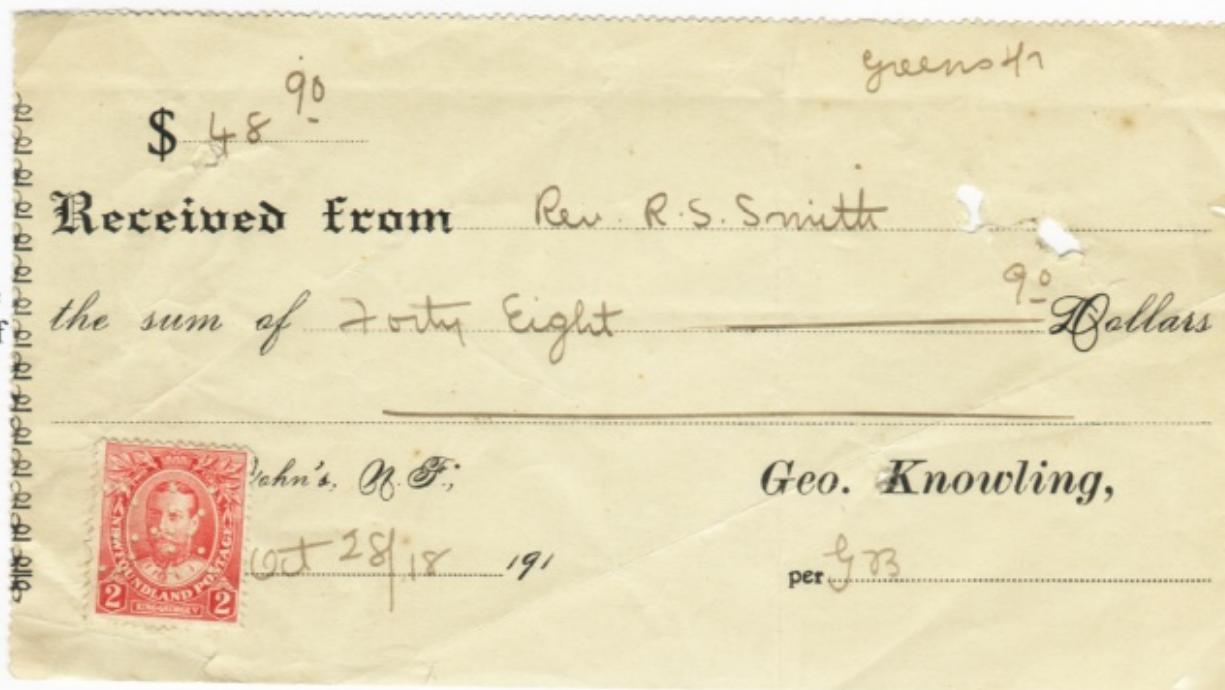 $ 48 90
Received from Rev. R.S. Smith
the sum of Forty Eight 90 Dollars
John's, N.F.,
Geo. Knowling,
Oct 28/18 191
per GB
NEWFOUNDLAND POSTAGE
2 KING GEORGE V 2